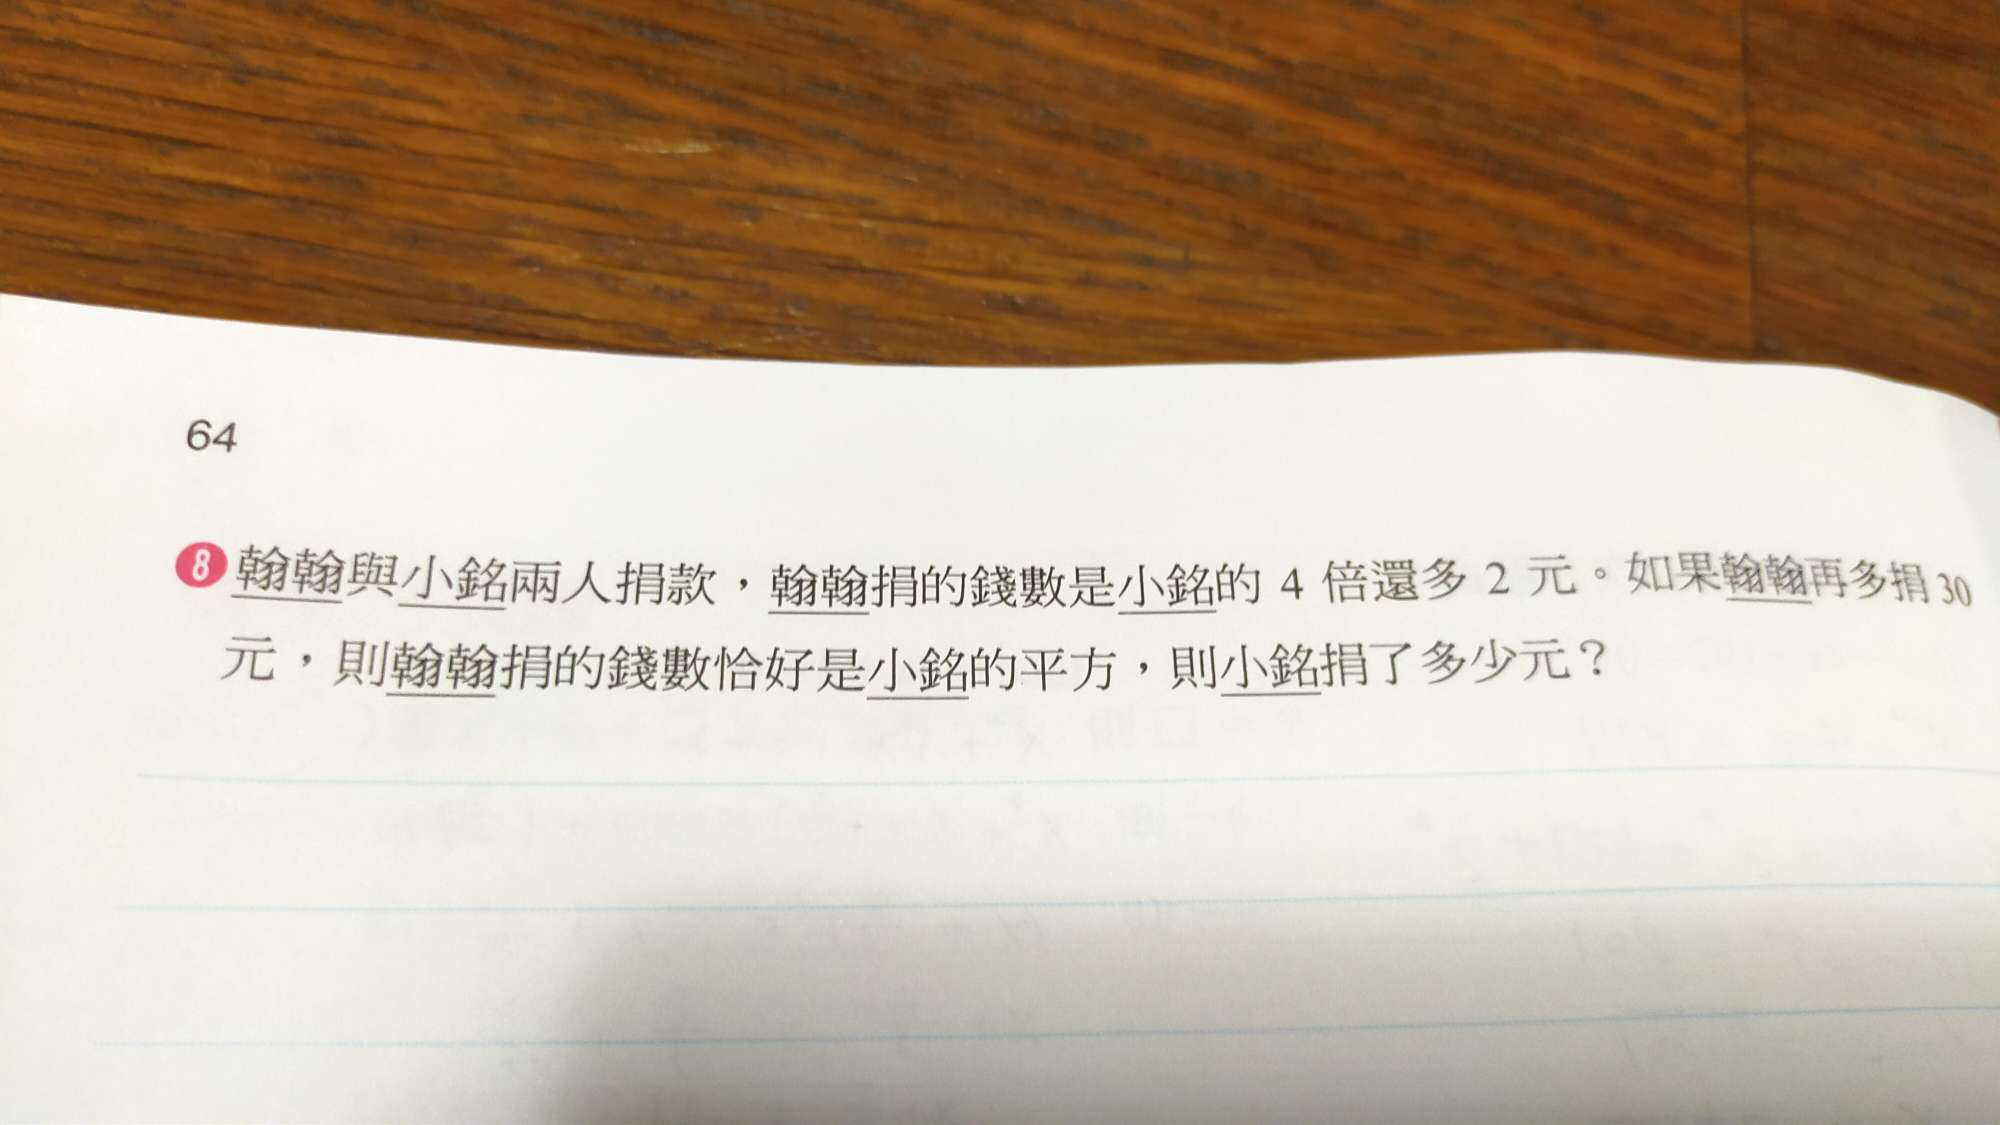 64
8 翰翰與小銘兩人捐款，翰翰捐的錢數是小銘的 4 倍還多 2 元。如果翰翰再多捐 30
元，則翰翰捐的錢數恰好是小銘的平方，則小銘捐了多少元？